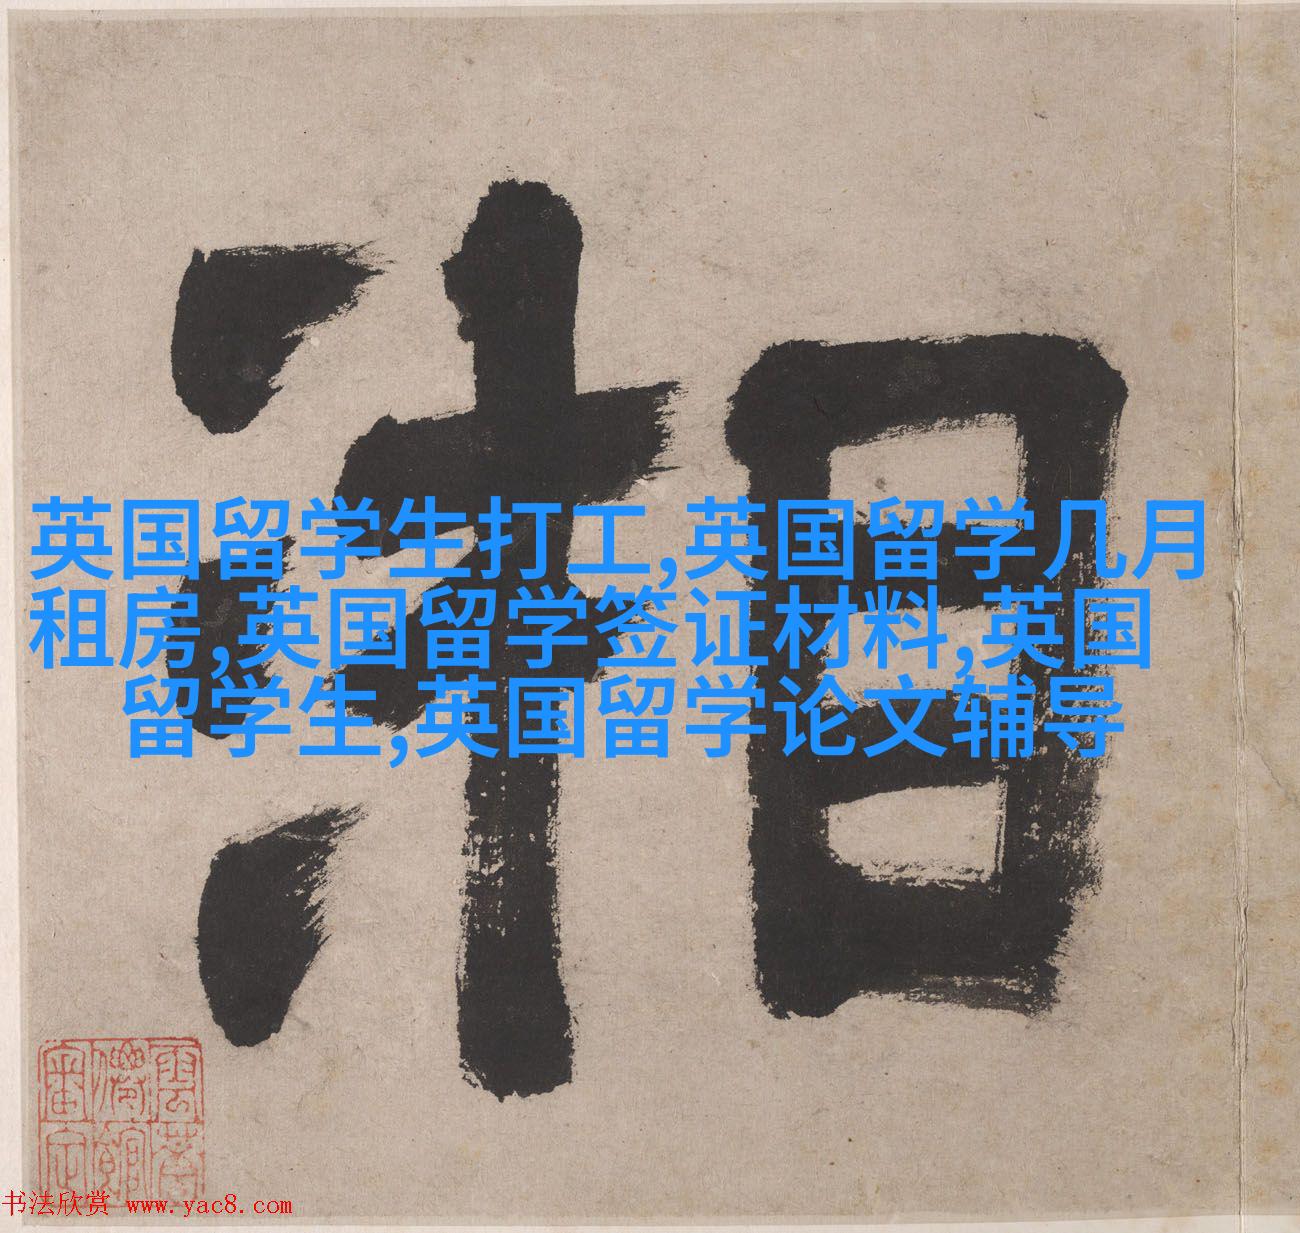 湘
英国留学生打工,英国留学几月
租房,英国留学签证材料,英国
留学生,英国留学论文辅导
书法欣赏 www.yac8.com